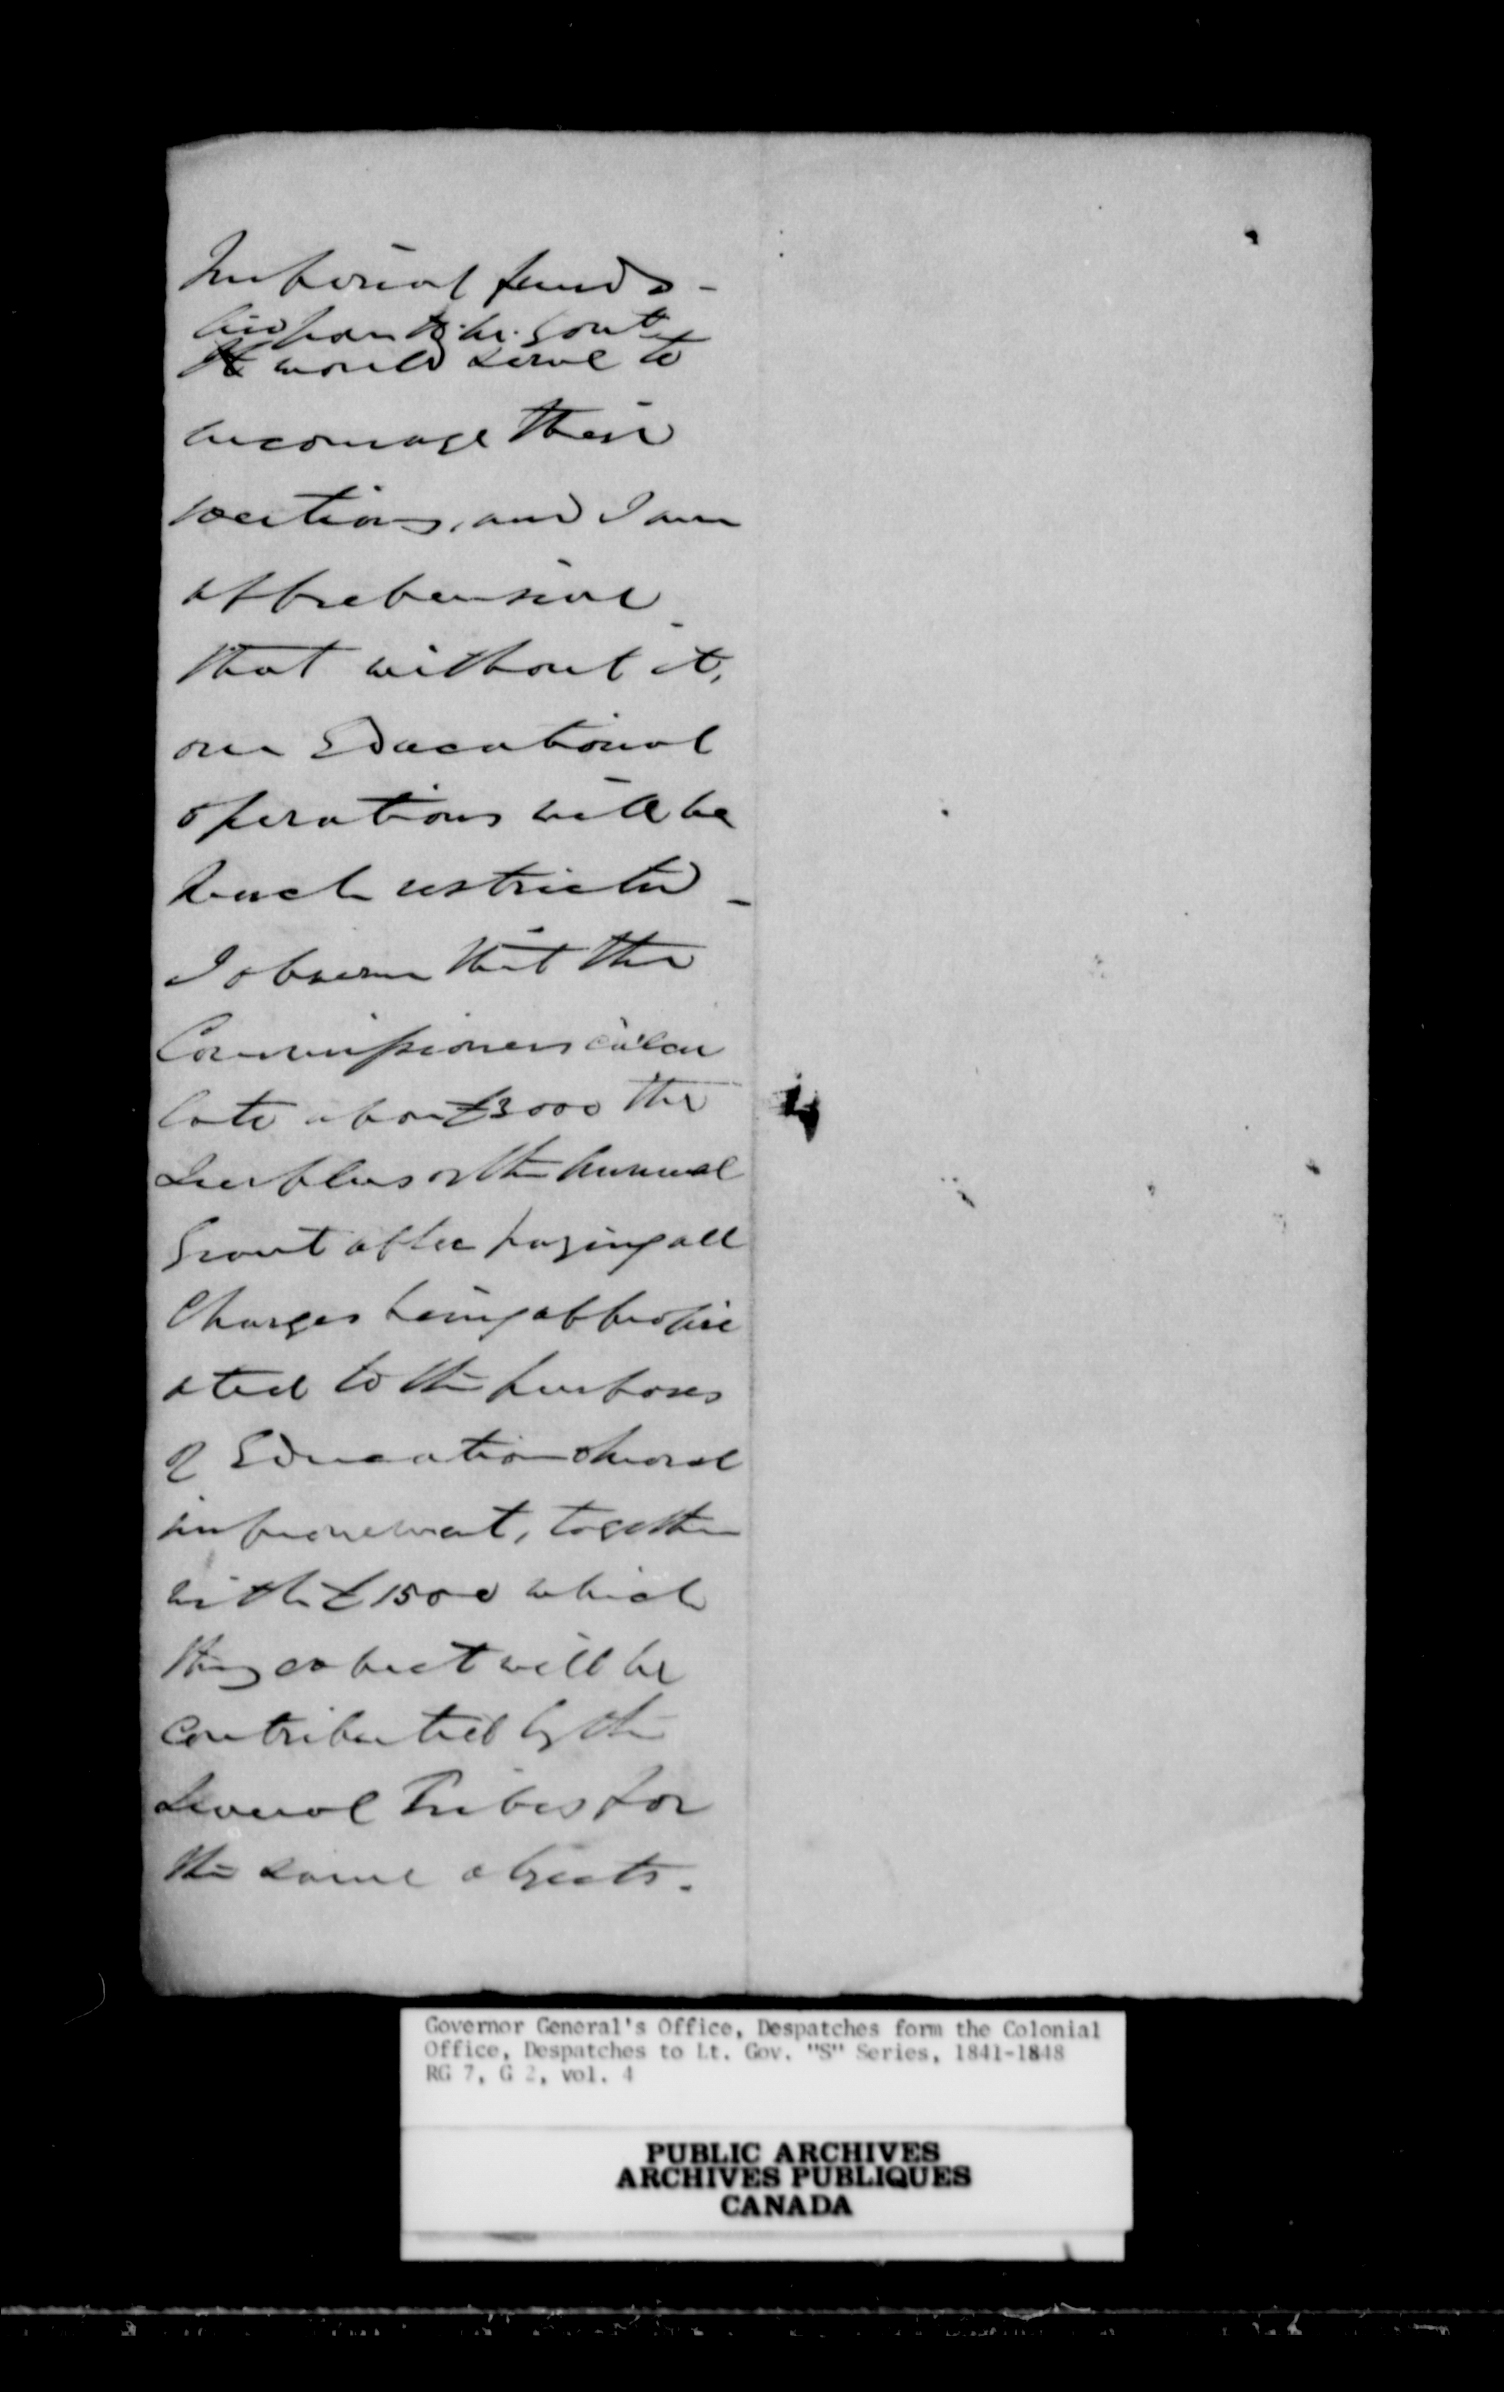 Imperial funds -
Aid from the Govt
It would serve to
encourage their
exertions, and I am
apprehensive
that without it,
our Educational
operations will be
much restricted -
I observe that the
Commissioners calcu
late about £3000 the
Surplus of the Annual
Grant after paying all
Charges being appropri
ated to the purposes
of Education & moral
improvement, together
with £1500 which
they expect will be
contributed by the
several Tribes for
the same objects.
Governor General's Office, Despatches form the Colonial
Office, Despatches to Lt. Gov. "S" Series, 1841-1848
RG 7, G 2, vol. 4
PUBLIC ARCHIVES
ARCHIVES PUBLIQUES
CANADA